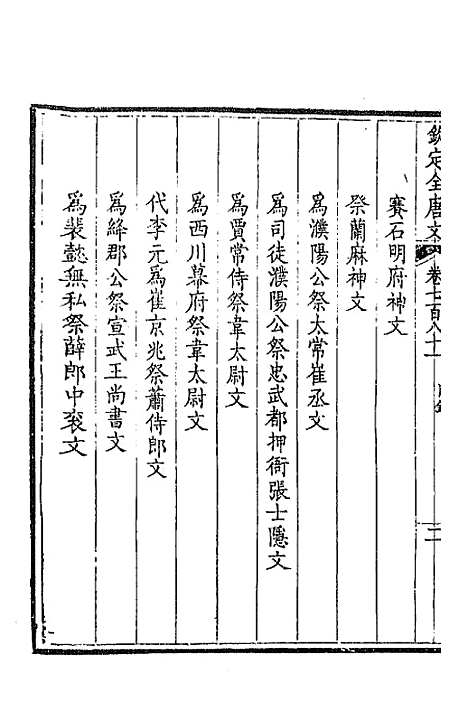 欽定全唐文 卷七百八十一 目錄 二
賽石明府神文
祭蘭麻神文
為濮陽公祭太常崔丞文
為司徒濮陽公祭忠武都押衙張士隱文
為賈常侍祭韋太尉文
為西川幕府祭韋太尉文
代李元為崔京兆祭蕭侍郎文
為絳郡公祭宣武王尚書文
為裴懿無私祭薛郎中衮文